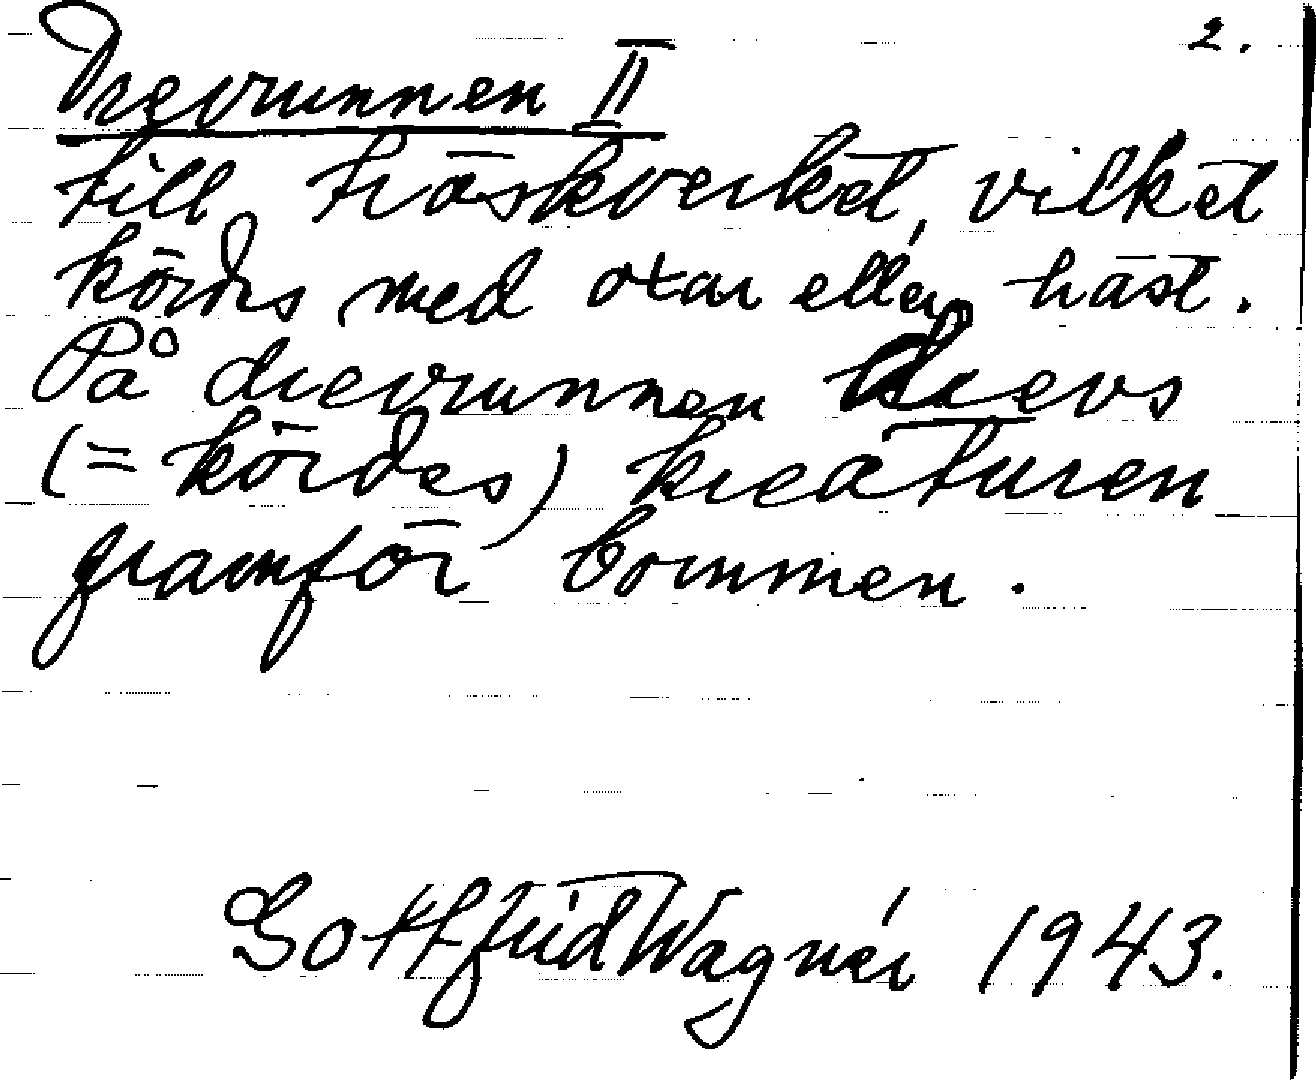 2.
Drevrunnen II
till tröskverket, vilket
kördes med oxar eller häst.
På drevrunnen drevs
(= kördes) kreaturen
framför bommen.
Gottfrid Wagnér 1943.